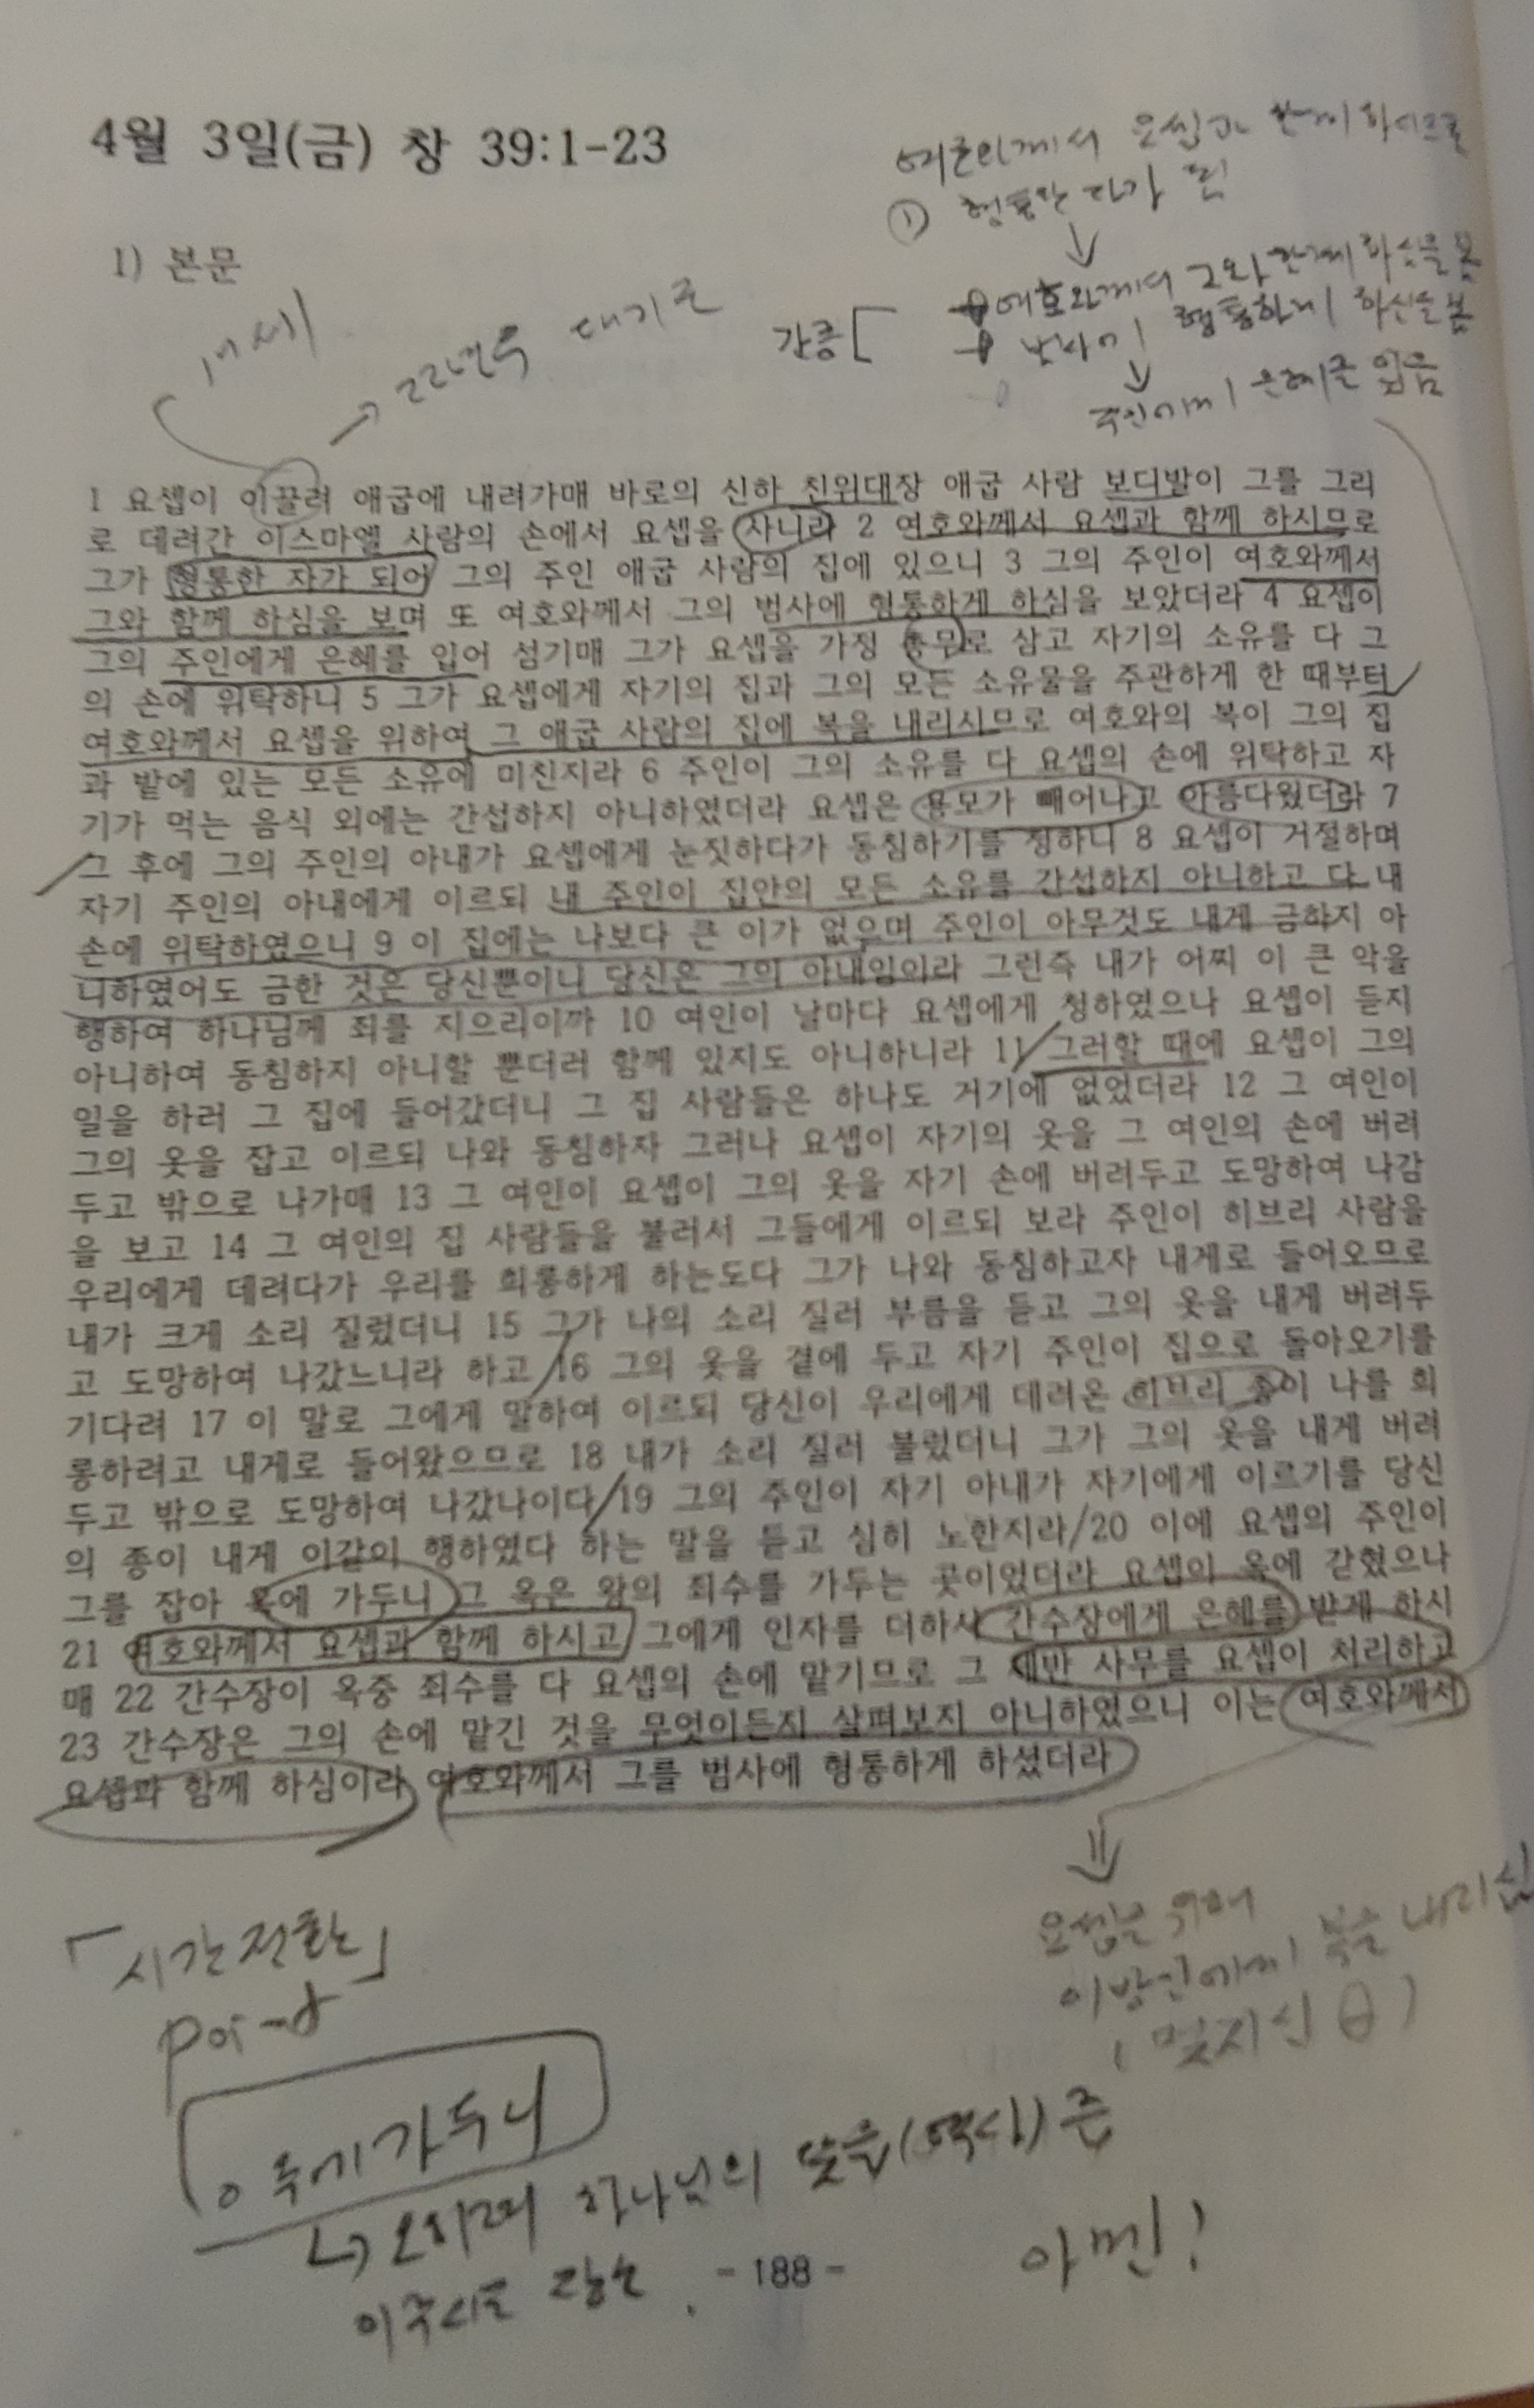 4월 3일(금) 창 39:1-23
여호와께서 요셉과 함께 하시므로
① 형통한 자가 됨
1) 본문
22년후
여호와께서 그와 함께 하심을 봄
형통하게 하심을 봄
주인에게 은혜를 입음
1 요셉이 이끌려 애굽에 내려가매 바로의 신하 친위대장 애굽 사람 보디발이 그를 그리
로 데려간 이스마엘 사람의 손에서 요셉을 사니라 2 여호와께서 요셉과 함께 하시므로
그가 형통한 자가 되어 그의 주인 애굽 사람의 집에 있으니 3 그의 주인이 여호와께서
그와 함께 하심을 보며 또 여호와께서 그의 범사에 형통하게 하심을 보았더라 4 요셉이
그의 주인에게 은혜를 입어 섬기매 그가 요셉을 가정 총무로 삼고 자기의 소유를 다 그
의 손에 위탁하니 5 그가 요셉에게 자기의 집과 그의 모든 소유물을 주관하게 한 때부터
여호와께서 요셉을 위하여 그 애굽 사람의 집에 복을 내리시므로 여호와의 복이 그의 집
과 밭에 있는 모든 소유에 미친지라 6 주인이 그의 소유를 다 요셉의 손에 위탁하고 자
기가 먹는 음식 외에는 간섭하지 아니하였더라 요셉은 용모가 빼어나고 아름다웠더라 7
그 후에 그의 주인의 아내가 요셉에게 눈짓하다가 동침하기를 청하니 8 요셉이 거절하며
자기 주인의 아내에게 이르되 내 주인이 집안의 모든 소유를 간섭하지 아니하고 다 내
손에 위탁하였으니 9 이 집에는 나보다 큰 이가 없으며 주인이 아무것도 내게 금하지 아
니하였어도 금한 것은 당신뿐이니 당신은 그의 아내임이라 그런즉 내가 어찌 이 큰 악을
행하여 하나님께 죄를 지으리이까 10 여인이 날마다 요셉에게 청하였으나 요셉이 듣지
아니하여 동침하지 아니할 뿐더러 함께 있지도 아니하니라 11 그러할 때에 요셉이 그의
일을 하러 그 집에 들어갔더니 그 집 사람들은 하나도 거기에 없었더라 12 그 여인이
그의 옷을 잡고 이르되 나와 동침하자 그러나 요셉이 자기의 옷을 그 여인의 손에 버려
두고 밖으로 나가매 13 그 여인이 요셉이 그의 옷을 자기 손에 버려두고 도망하여 나감
을 보고 14 그 여인의 집 사람들을 불러서 그들에게 이르되 보라 주인이 히브리 사람을
우리에게 데려다가 우리를 희롱하게 하는도다 그가 나와 동침하고자 내게로 들어오므로
내가 크게 소리 질렀더니 15 그가 나의 소리 질러 부름을 듣고 그의 옷을 내게 버려두
고 도망하여 나갔느니라 하고 16 그의 옷을 곁에 두고 자기 주인이 집으로 돌아오기를
기다려 17 이 말로 그에게 말하여 이르되 당신이 우리에게 데려온 히브리 종이 나를 희
롱하려고 내게로 들어왔으므로 18 내가 소리 질러 불렀더니 그가 그의 옷을 내게 버려
두고 밖으로 도망하여 나갔나이다 19 그의 주인이 자기 아내가 자기에게 이르기를 당신
의 종이 내게 이같이 행하였다 하는 말을 듣고 심히 노한지라 20 이에 요셉의 주인이
그를 잡아 옥에 가두니 그 옥은 왕의 죄수를 가두는 곳이었더라 요셉이 옥에 갇혔으나
21 여호와께서 요셉과 함께 하시고 그에게 인자를 더하사 간수장에게 은혜를 받게 하시
매 22 간수장이 옥중 죄수를 다 요셉의 손에 맡기므로 그 제반 사무를 요셉이 처리하고
23 간수장은 그의 손에 맡긴 것을 무엇이든지 살펴보지 아니하였으니 이는 여호와께서
요셉과 함께 하심이라 여호와께서 그를 범사에 형통하게 하셨더라
「시간전환」
요셉을 위해
이방인에게 복을 내리심
옥에 가두니
하나님의 뜻을(역사)
아멘!
- 188 -